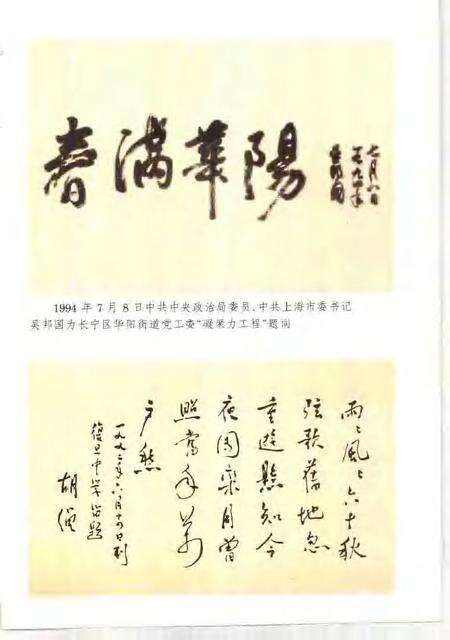 春满華陽
七月八日
一九九四年
吴邦国
1994 年 7 月 8 日中共中央政治局委员、中共上海市委书记
吴邦国为长宁区华阳街道党工委“凝聚力工程”题词
雨々風々六十秋
弦歌舊地忽
重遊懸知今
夜園欒月曾
照當年萬
户愁
一九九二年六月十四日到
復旦中學留題
胡繩